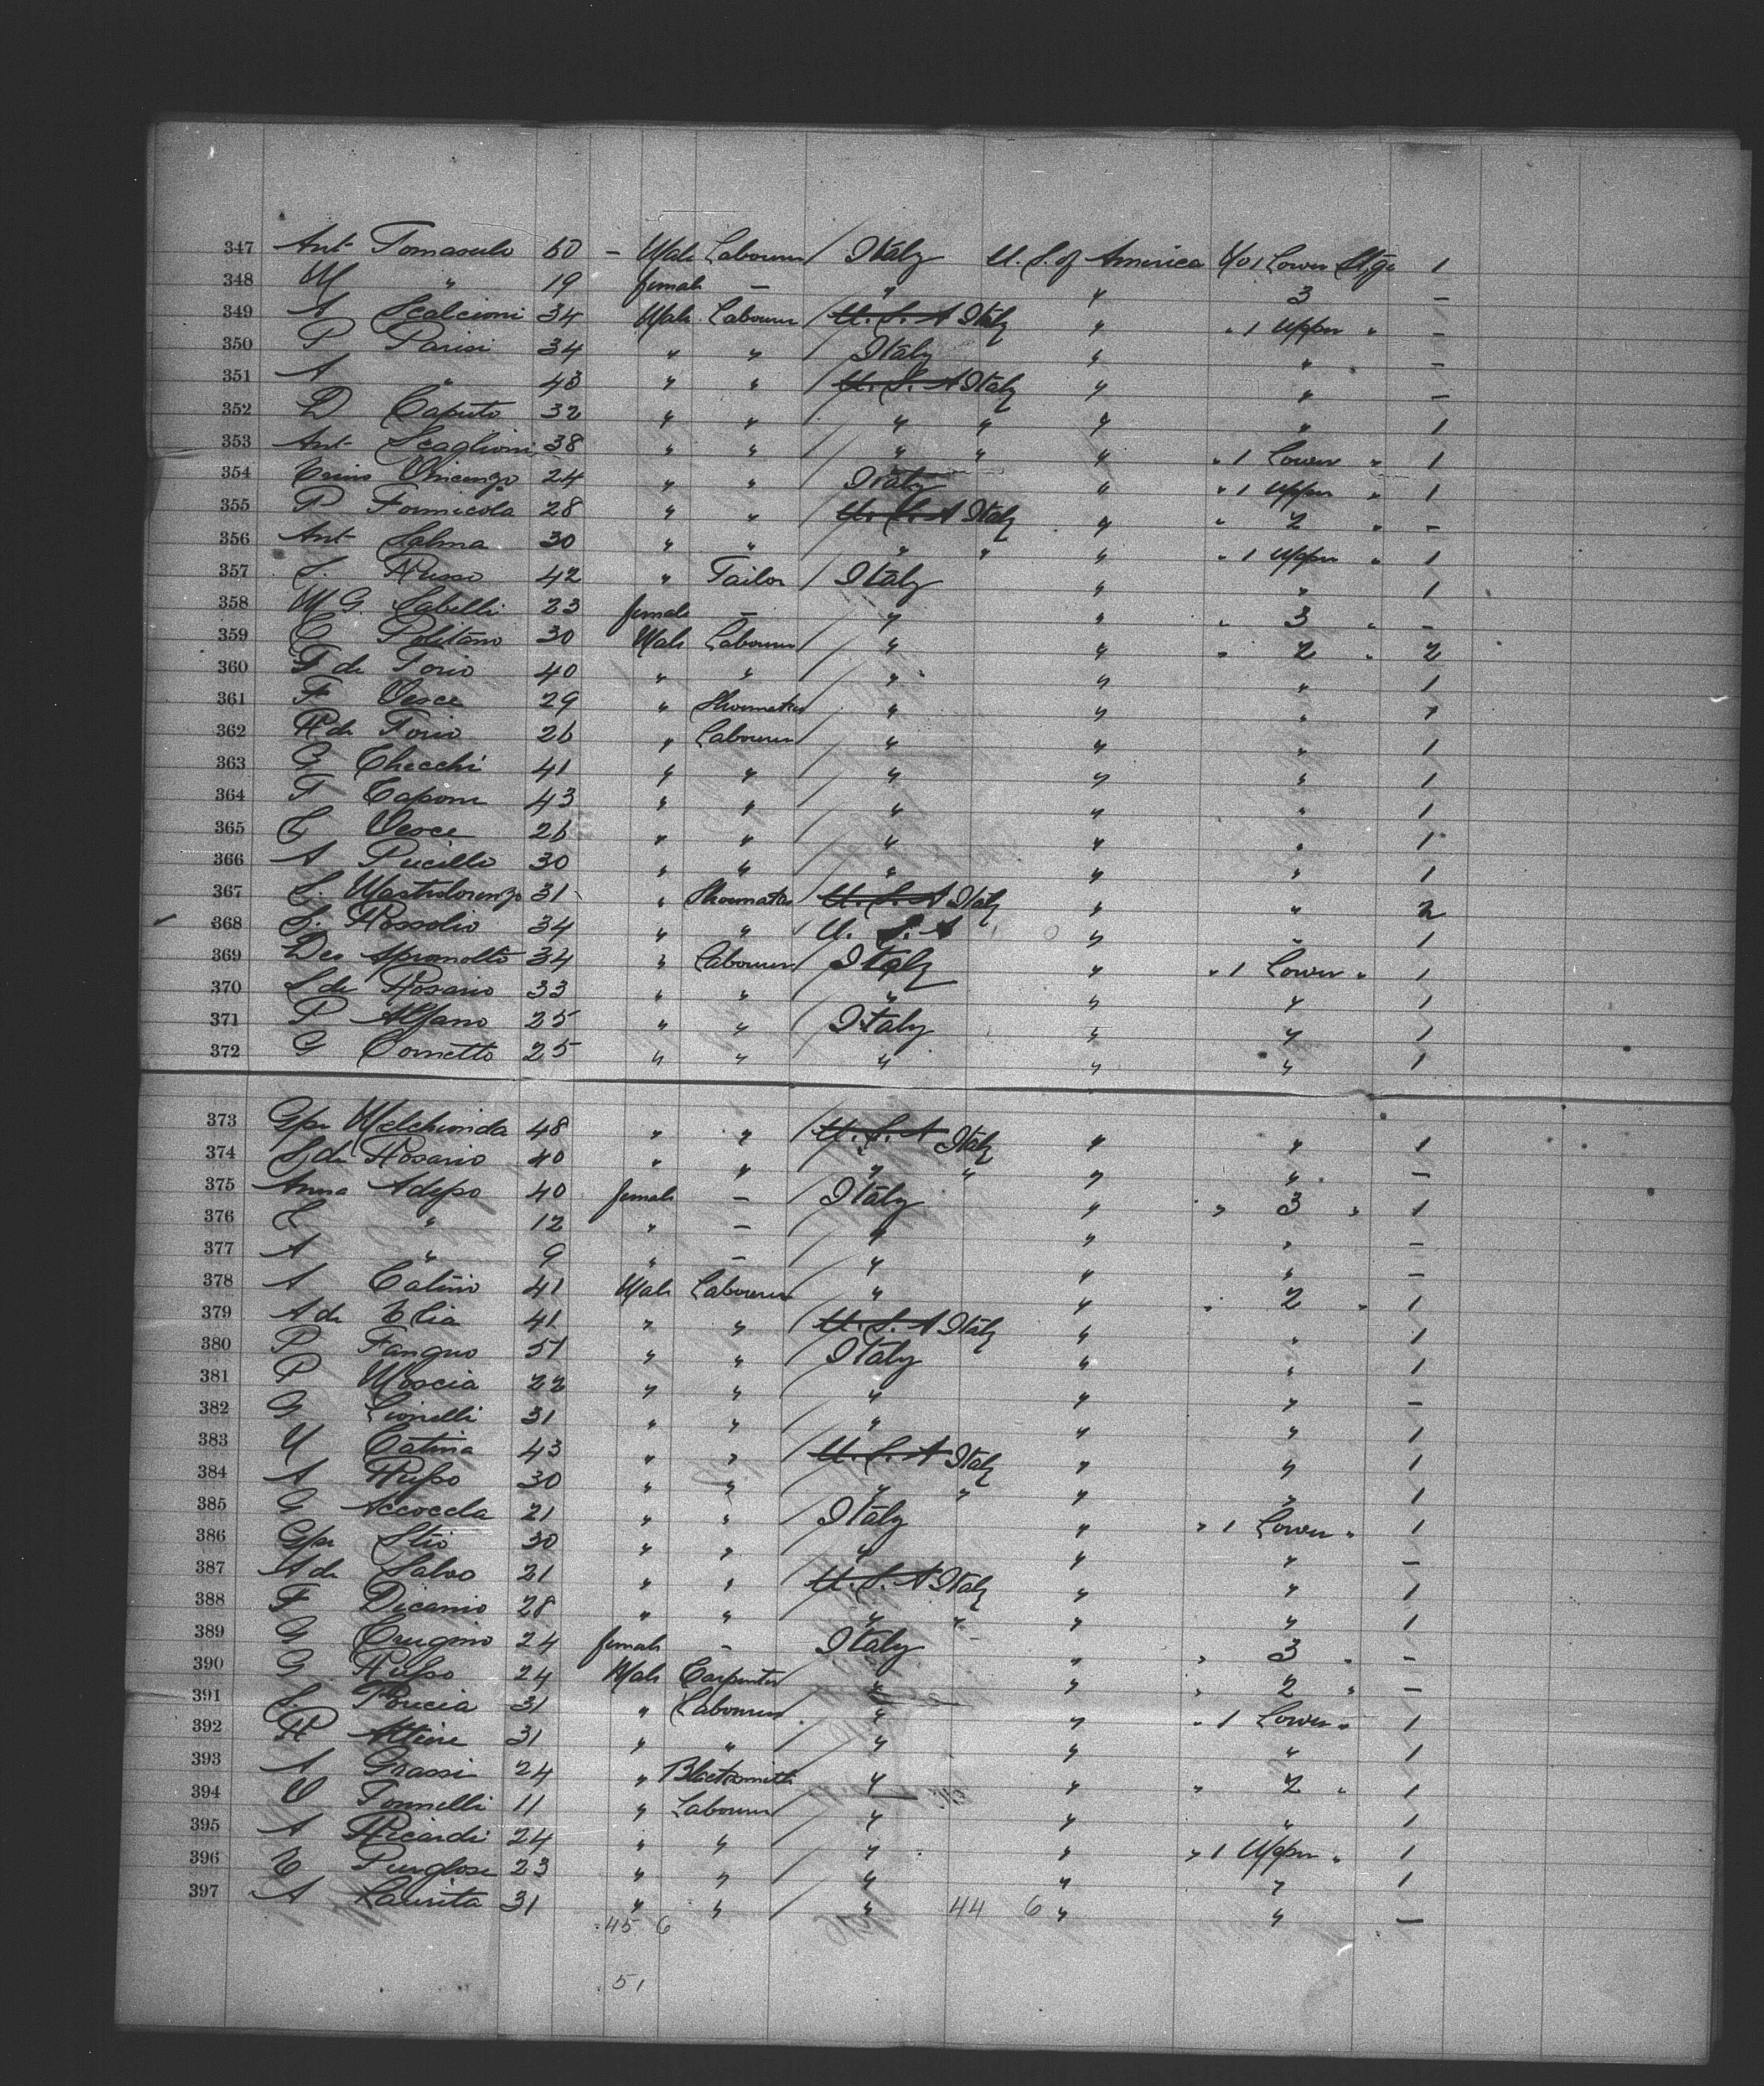 347 Ant Tomasulo 60 – Male Labourer / Italy U. S. of America No 1 Lower Stge 1
348 M " 19 female – " " 3 –
349 A Scalcioni 34 Male Labourer / U. S. A Italy " " 1 Upper " –
350 P Parisi 34 " " / Italy " " –
351 A " 43 " " / U. S. A Italy " " –
352 D Caputo 32 " " / " " " " 1
353 Ant Scaglioni 38 " " / " " " " 1 Lower " 1
354 24 " " / Italy " " 1 Upper " 1
355 P Formicola 28 " " / U. S. A Italy " " 2 " –
356 Ant Salma 30 " " / " " " " 1 Upper " 1
357 S. Russo 42 " Tailor / Italy " " 1
358 M G. Sabelli 23 female – / " " " 3 " –
359 C Politano 30 Male Labourer / " " " 2 " 2
360 F de Torio 40 " " / " " " 1
361 F Vesce 29 " Shoemaker / " " " 1
362 R de Torio 26 " Labourer / " " " 1
363 G Checchi 41 " " / " " " 1
364 F Capone 43 " " / " " " 1
365 L Vesce 26 " " / " " " 1
366 A Pucillo 30 " " / " " " 1
367 S. Mastrolorenzo 31 " Shoemaker / U. S. A Italy " " 2
368 S. Rossolio 34 " " / U. S. A " " 1
369 Deo Apromollo 34 " Labourer / Italy " " 1 Lower " 1
370 S de Rosario 33 " " / " " " 1
371 P Alfano 25 " " / Italy " " 1
372 G Cometto 25 " " / " " " 1
373 Gpe Melchionda 48 " " / U. S. A Italy " " 1
374 S de Rosario 40 " " / " " " " –
375 Anna Adeso 40 female – / Italy " " 3 " 1
376 L " 12 " – / " " " –
377 A " 9 " – / " " " –
378 A Catino 41 Male Labourer / " " " 2 " 1
379 A de Elia 41 " " / U. S. A Italy " " 1
380 P Fanguo 51 " " / Italy " " 1
381 P Moscia 22 " " / " " " –
382 G Lionelli 31 " " / " " " 1
383 M Catina 43 " " / U. S. A Italy " " 1
384 A Russo 30 " " / " " " " 1
385 G Accocela 21 " " / Italy " " 1 Lower " 1
386 Gpe Stio 30 " " / " " " –
387 A de Salvo 21 " " / U. S. A Italy " " 1
388 F Dicanio 28 " " / " " " " 1
389 G Crugino 24 female – / Italy " " 3 " –
390 G Russo 24 Male Carpenter / " " " 2 " –
391 S. Porcia 31 " Labourer / " " " 1 Lower " 1
392 R Altieri 31 " " / " " " 1
393 A Grassi 24 " Blacksmith / " " " 2 " 1
394 V Tonnelli 11 " Labourer / " " " 1
395 A Ricardi 24 " " / " " " 1 Upper " 1
396 E 23 " " / " " " 1
397 A Laurita 31 " " / " " " –
45 6 44 6
51